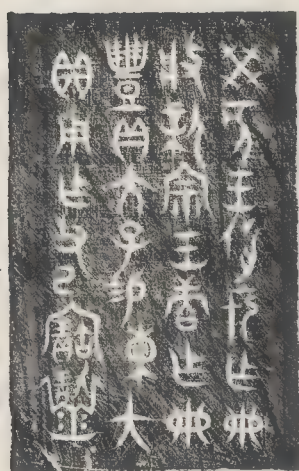 癸亥王𢓊于乍冊
般新宗王商乍冊
豐貝大子易東大
貝用乍父己寶䵼